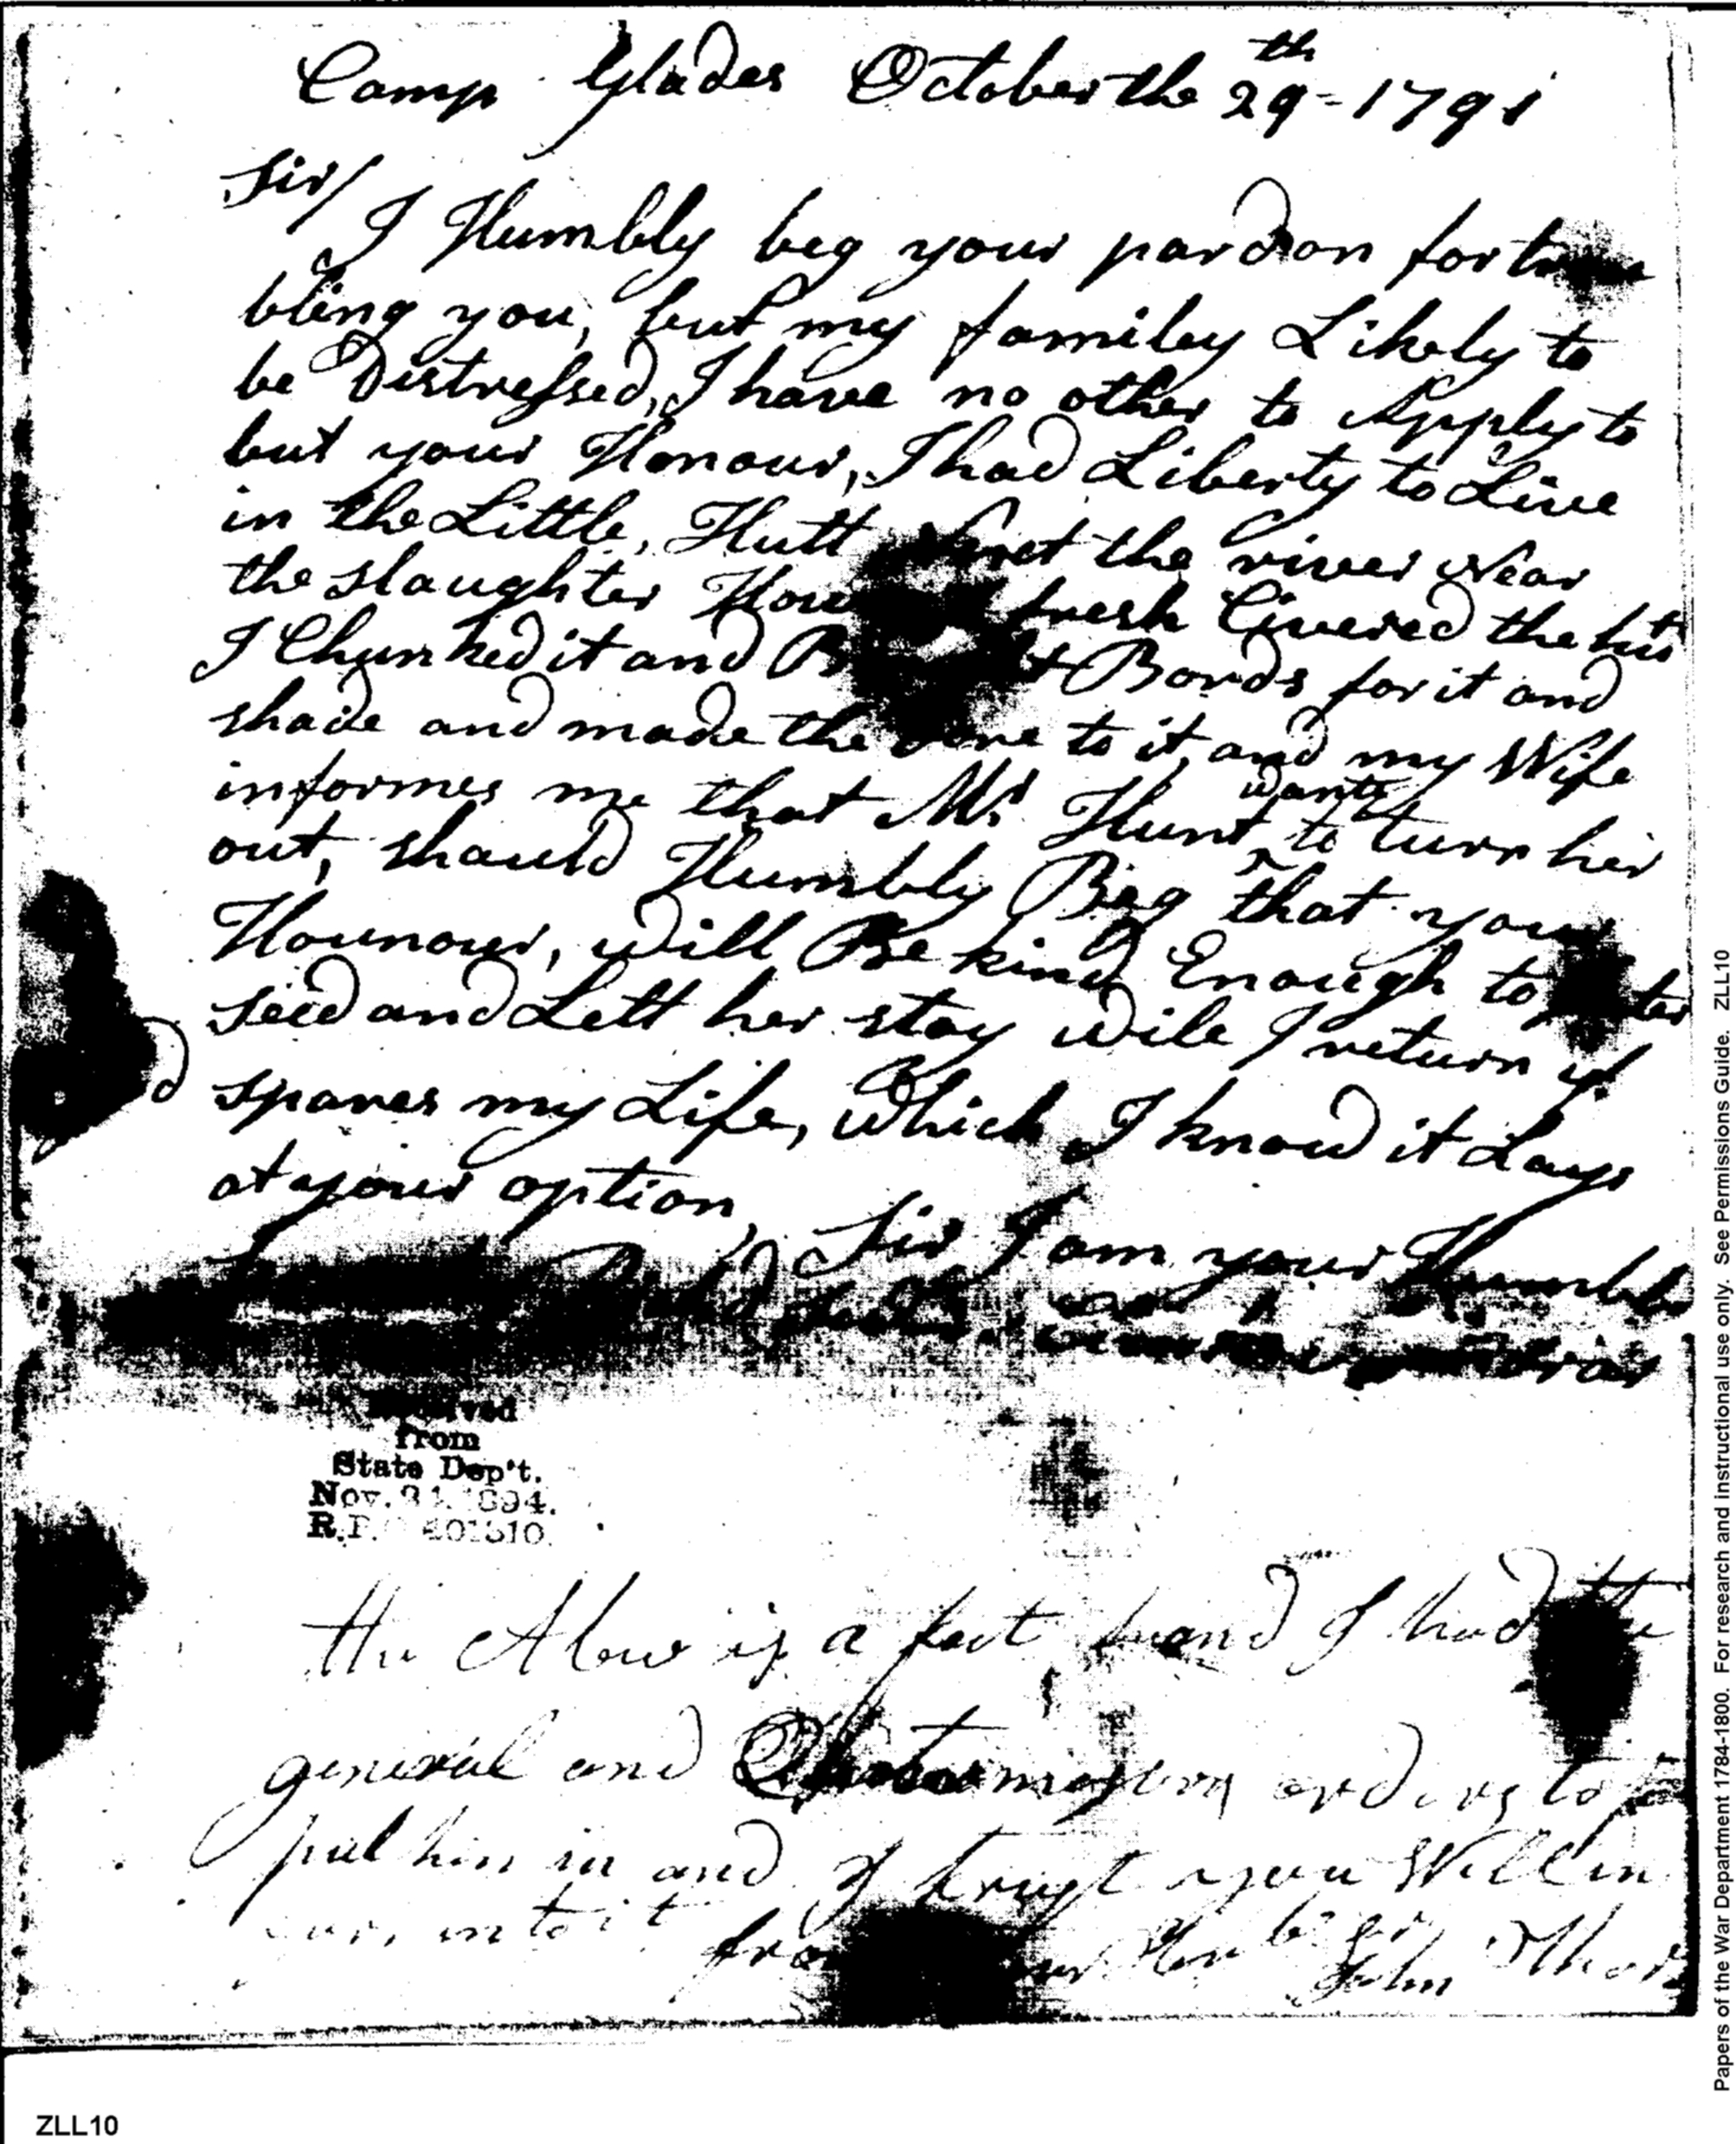 Camp Glades October the 29th = 1791
Sir/
I Humbly beg your pardon for
bling you, but my familey Likely to
be Distressed, I have no other to Apply to
but your Honour, I had Liberty to Live
in the Little, Hutt the river Near
the slaughter fresh Civered the
I Chunked it and Bords for it and
shade and made the dore to it, and my Wife
informes me that Mr Hunt wants to turn her
out, should Humbly Beg that your
Hounour, will Be kind Enough to
seed and Lett her stay wile I return if
d spares my Life, Which I know it Lays
at your option,
Sir I am your Humble
Received
from
State Dep't.
Nov. 1894.
R.P.
the Abov is a fact and I had the
general and orders to
put him in and I trust you Will in
in to it
John
Papers of the War Department 1784-1800. For research and instructional use only. See Permissions Guide. ZLL10
ZLL10